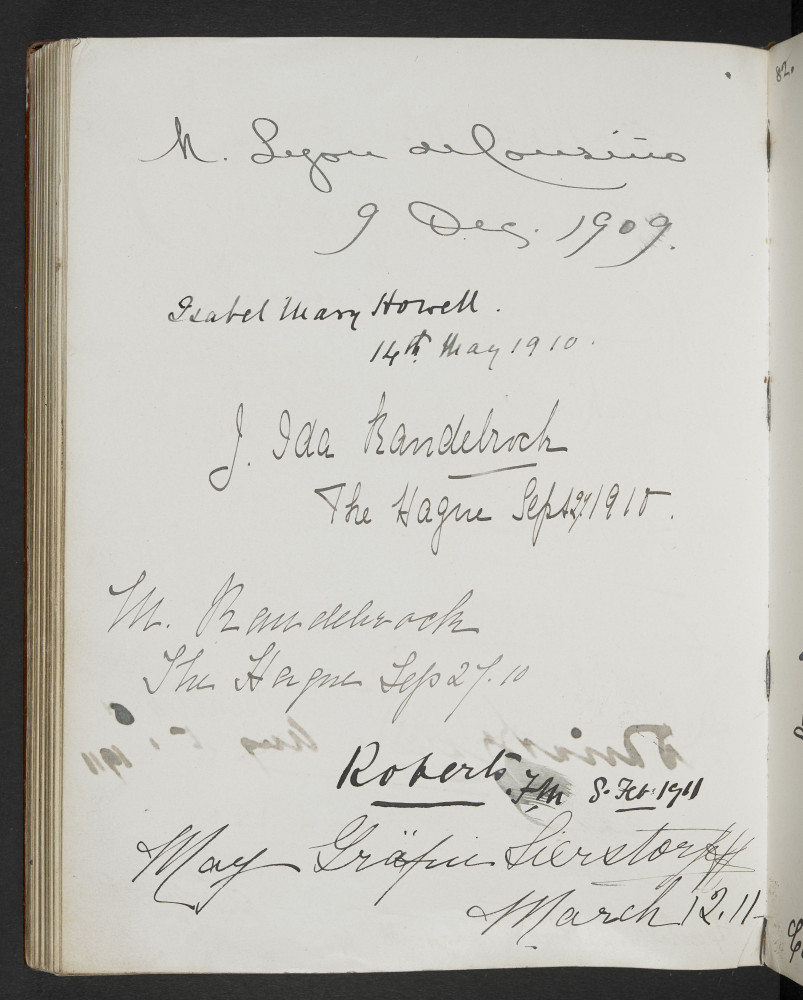 M. Segou de Cousiño
9 Dec. 1909.
Isabel Mary Howell.
14th May 1910.
J. Ida Randebrock
The Hague Sept 27. 1910.
M. Randebrock
The Hague Sep 27. 10
Roberts. F.M 8. Feb: 1911
May Gräfin Sierstorpff
March 12. 11
82.